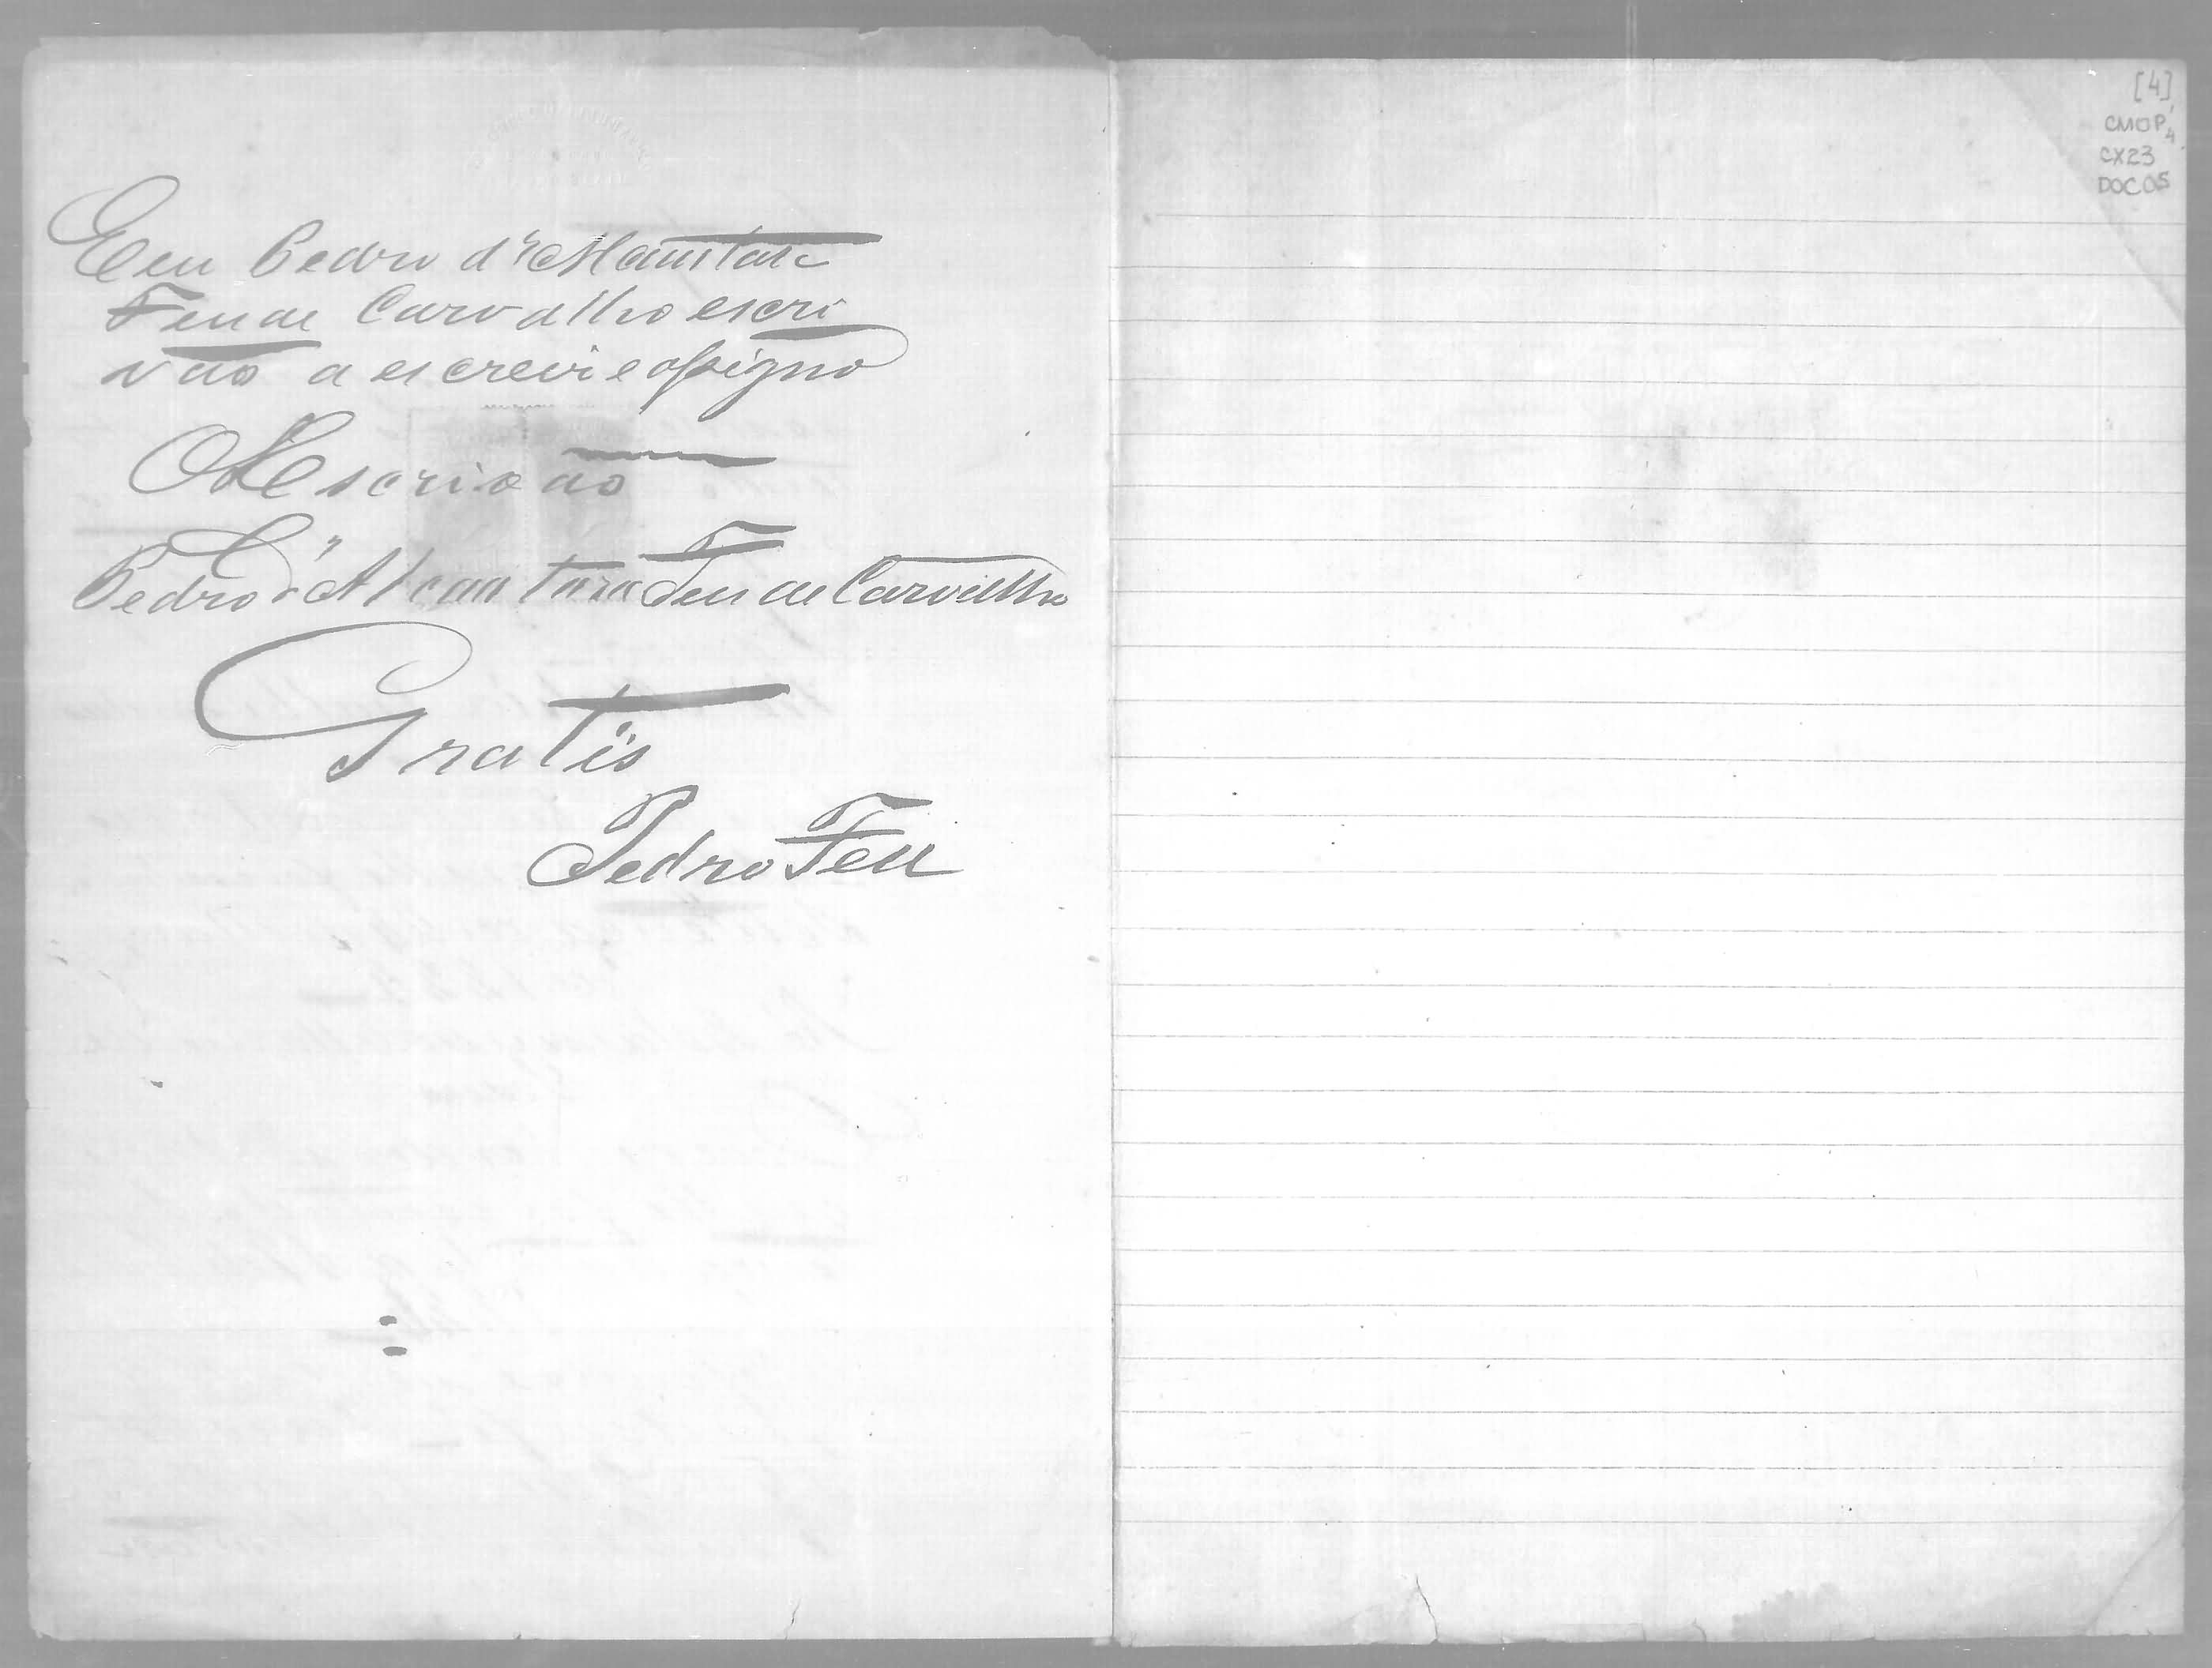 Eeu Pedro d'Alcantara
Feu de Carvalho escri
vão a escrevi e assigno
O Escrivão
Pedro d'Alcantara Feu de Carvalho
Gratis
Pedro Feu
[4]
CMOP
CX23
DOC05